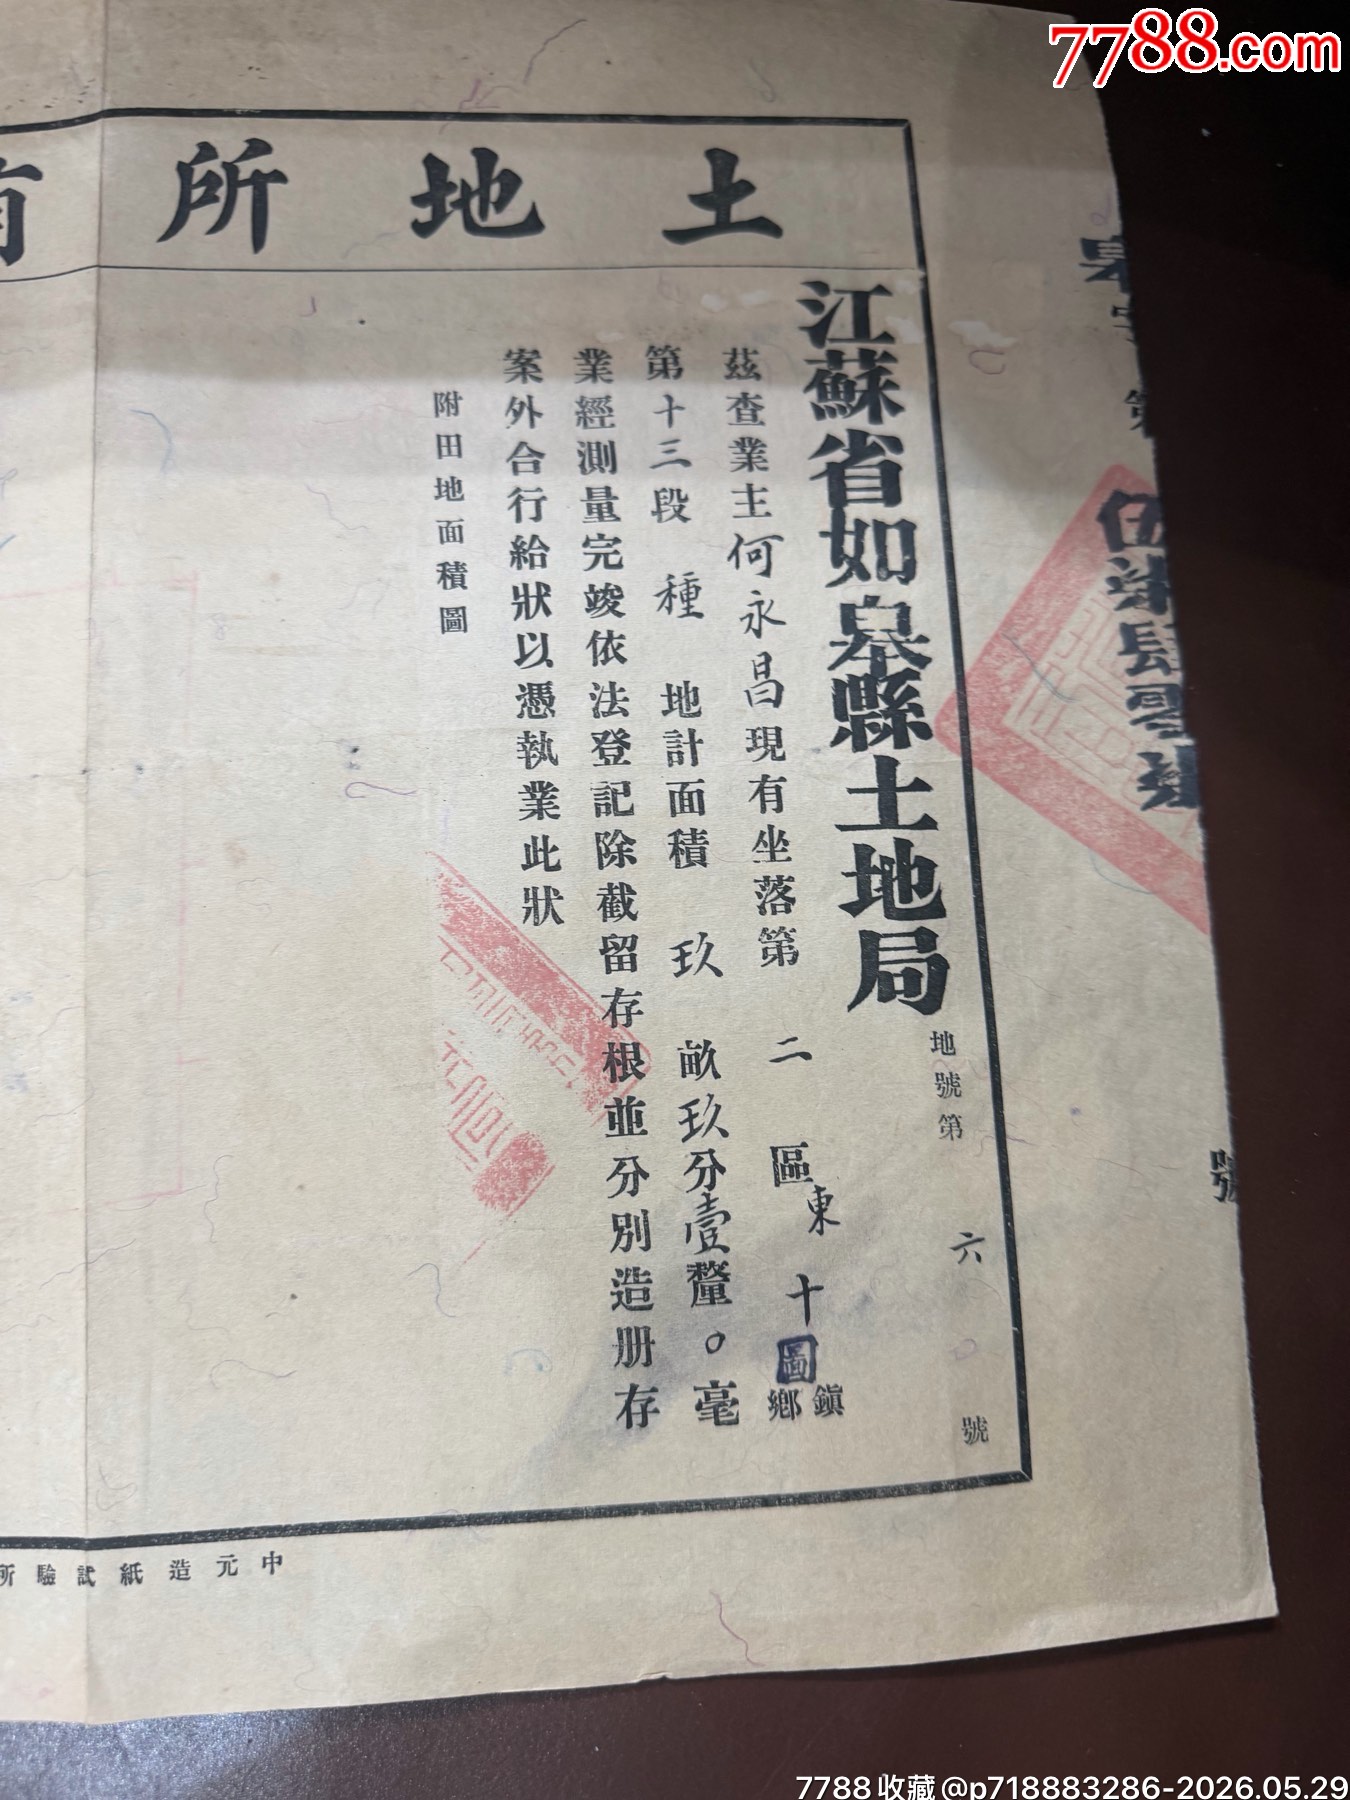 7788.com
土地所有
江蘇省如皋縣土地局
地號第 六 號
茲查業主何永昌現有坐落第 二 區東十圖鎮鄉
第十三段 種 地計面積 玖 畝玖分壹釐〇毫
業經測量完竣依法登記除截留存根並分別造册存
案外合行給狀以憑執業此狀
附田地面積圖
中元造紙試驗所
7788收藏@p718883286-2026.05.29